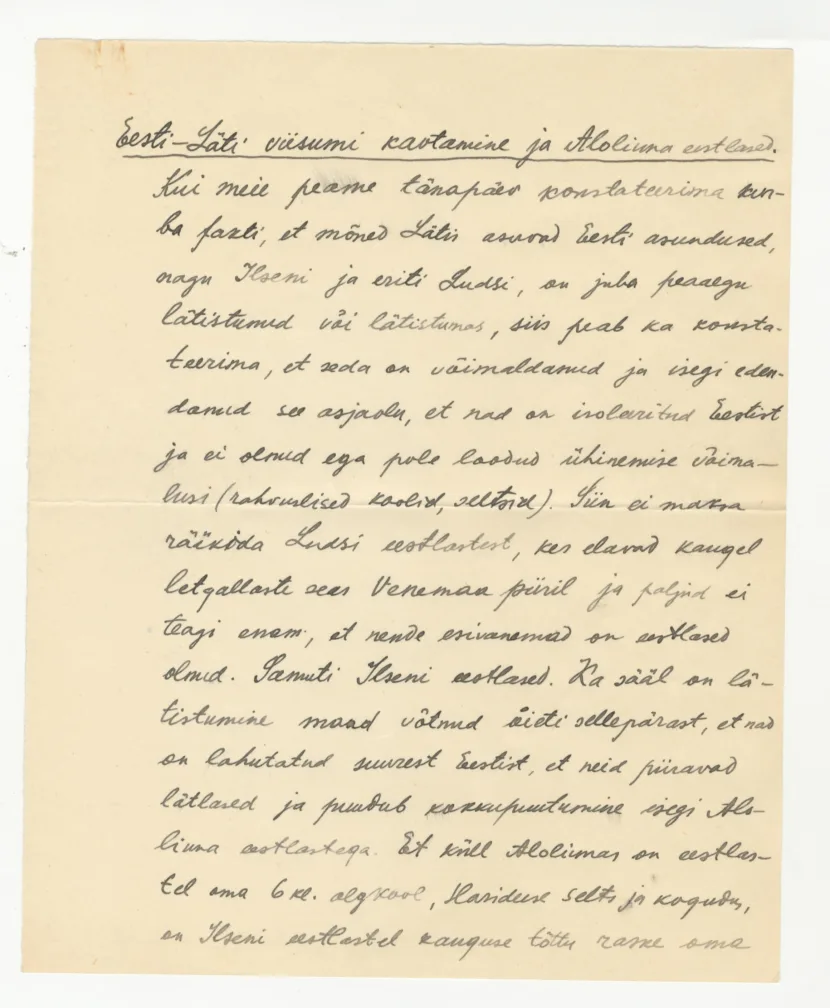 Eesti-Läti viisumi kaotamine ja Aloliina eestlased.
Kui meie peame tänapäev konstateerima kur-
ba fakti, et mõned Lätis asuvad Eesti asundused,
nagu Ilseni ja eriti Ludsi, on juba peaaegu
lätistunud või lätistumas, siis peab ka konsta-
teerima, et seda on võimaldanud ja isegi eden-
danud see asjaolu, et nad on isoleeritud Eestist
ja ei olnud ega pole loodud ühinemise võima-
lusi (rahvuslised koolid, seltsid). Siin ei maksa
rääkida Ludsi eestlastest, kes elavad kaugel
letgallaste seas Venemaa piiril ja paljud ei
teagi enam, et nende esivanemad on eestlased
olnud. Samuti Ilseni eestlased. Ka sääl on lä-
tistumine maad võtnud õieti sellepärast, et nad
on lahutatud suurest Eestist, et neid piiravad
lätlased ja puudub kokkupuutumine isegi Alo-
liina eestlastega. Et küll Aloliinas on eestlas-
tel oma 6 kl. algkool, Hariduse Selts ja kogudus,
on Ilseni eestlastel kauguse tõttu raske oma